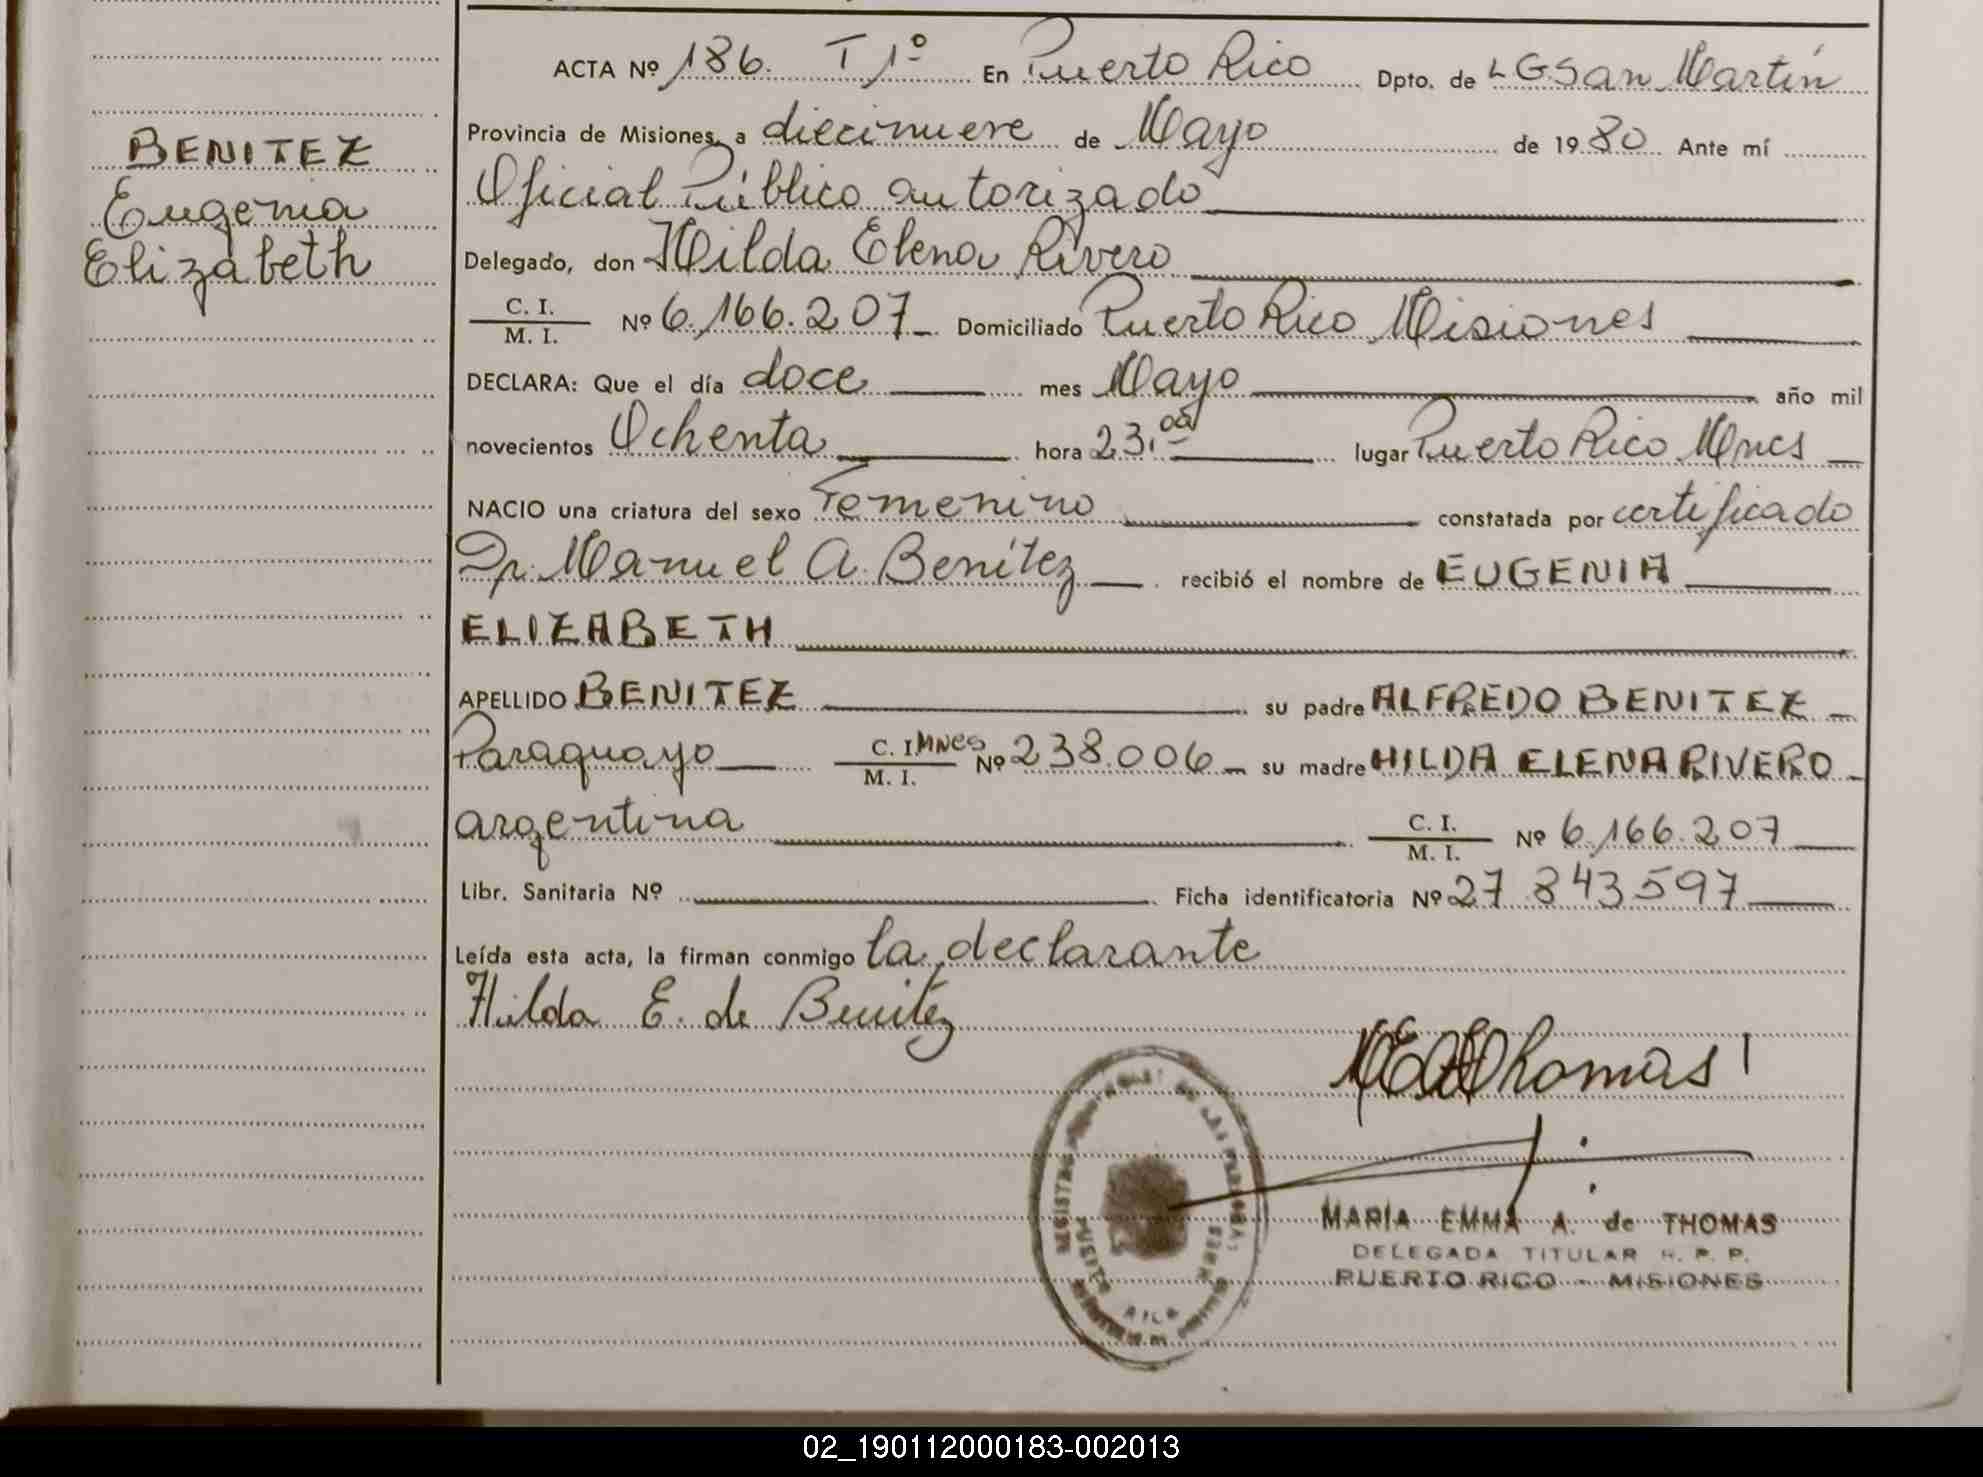 BENITEZ
Eugenia
Elizabeth
ACTA Nº 186. T 1º En Puerto Rico Dpto. de L G San Martín
Provincia de Misiones, a diecinueve de Mayo de 1980 Ante mí
Oficial Público autorizado
Delegado, don Hilda Elena Rivero
C. I.
M. I. Nº 6.166.207 Domiciliado Puerto Rico Misiones
DECLARA: Que el día doce mes Mayo año mil
novecientos Ochenta hora 23.00 lugar Puerto Rico Mnes
NACIO una criatura del sexo Femenino constatada por certificado
Dr. Manuel A. Benítez recibió el nombre de EUGENIA
ELIZABETH
APELLIDO BENITEZ su padre ALFREDO BENITEZ
Paraguayo C. I. MNES M. I. Nº 238.006 su madre HILDA ELENA RIVERO
argentina C. I. M. I. Nº 6.166.207
Libr. Sanitaria Nº Ficha identificatoria Nº 27.843.597
Leída esta acta, la firman conmigo la declarante
Hilda E. de Benitez
Thomas
MARÍA EMMA A. de THOMAS
DELEGADA TITULAR R. P. P.
PUERTO RICO - MISIONES
02_190112000183-002013